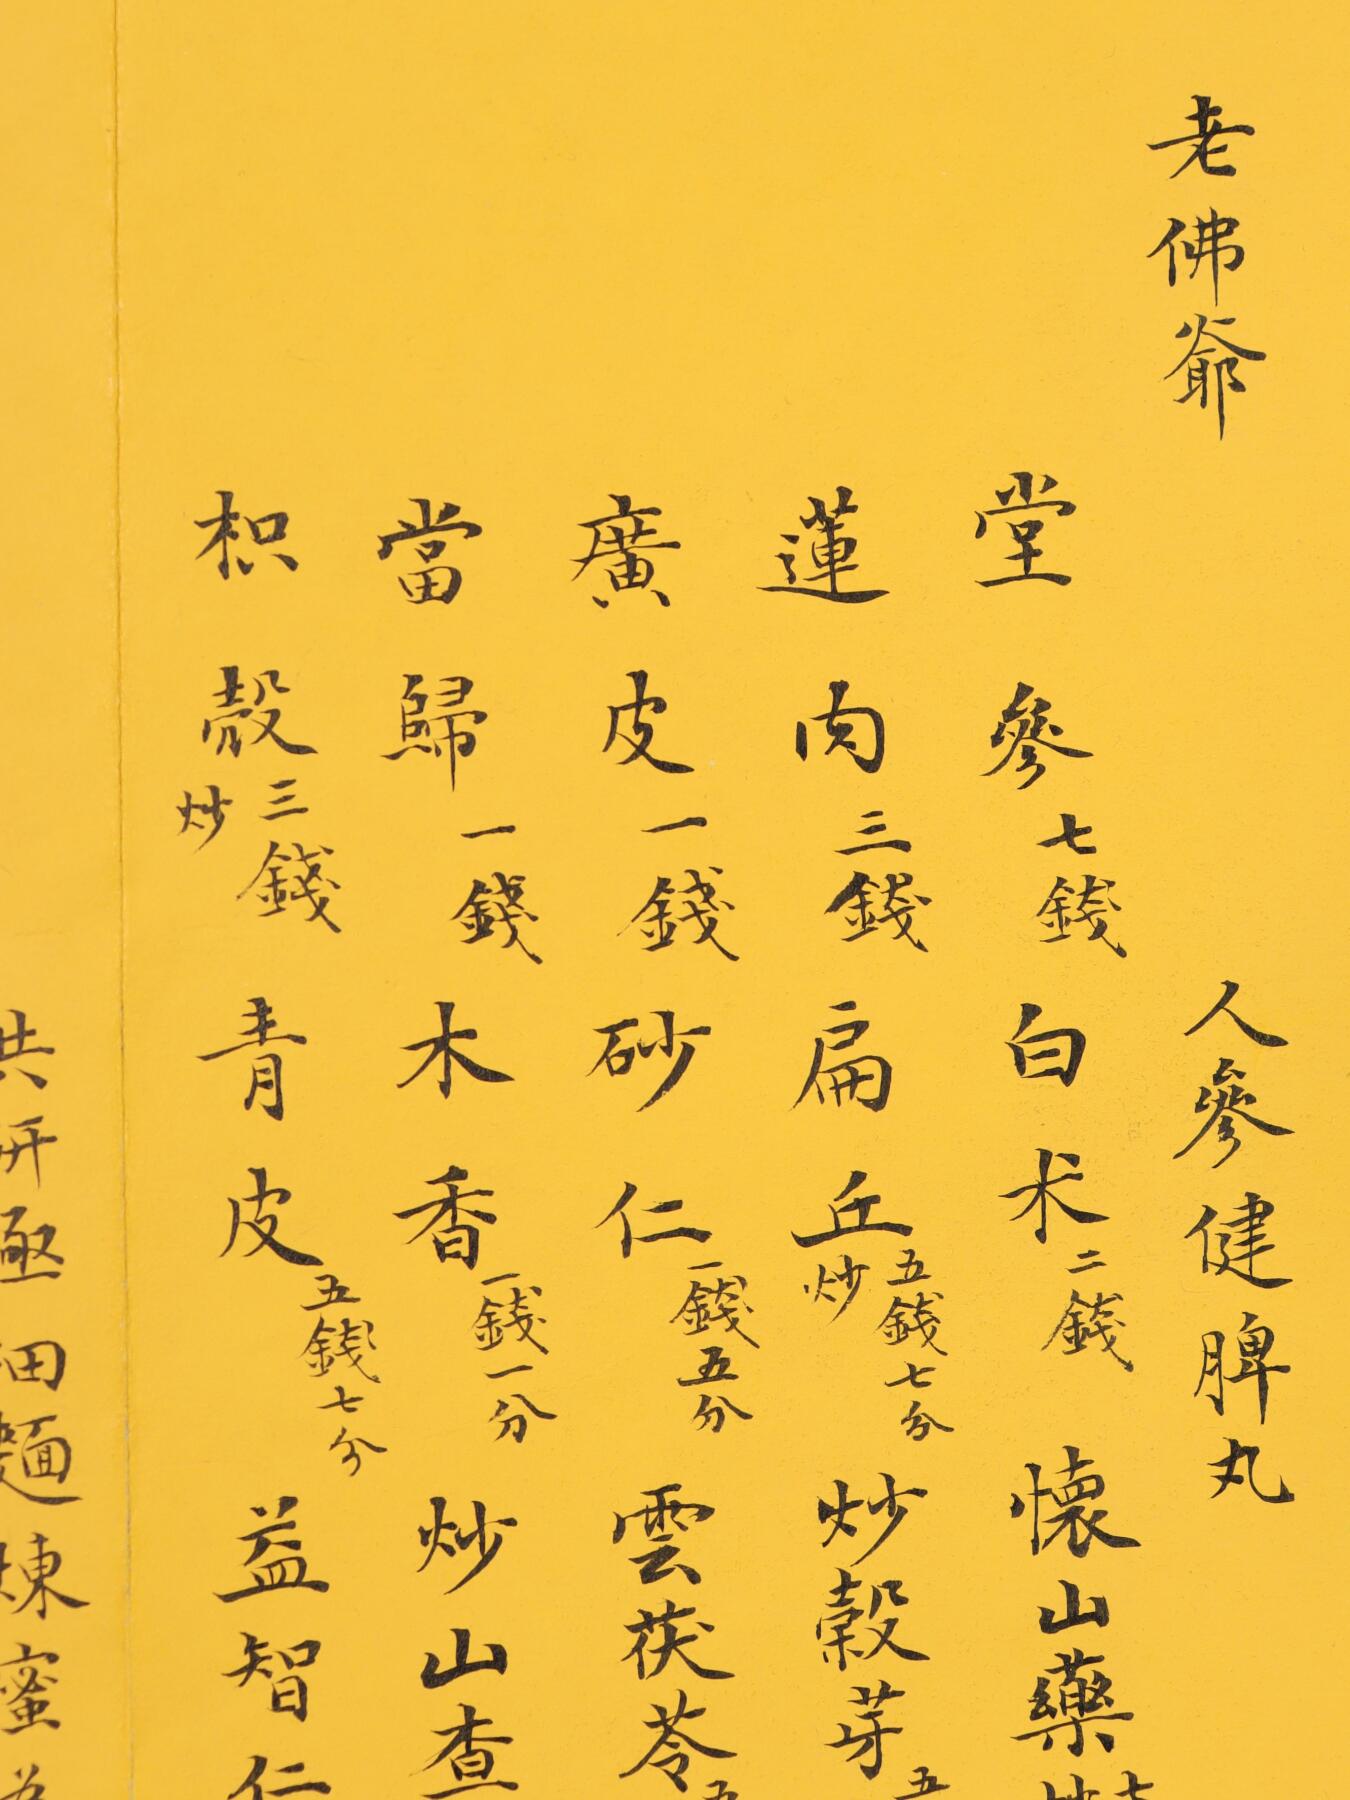 老佛爺
人參健脾丸
堂參七錢 白术二錢 懷山藥炒七
蓮肉三錢 扁丘炒五錢七分 炒穀芽五
廣皮一錢 砂仁一錢五分 雲茯苓五
當歸一錢 木香一錢一分 炒山查
枳殼炒三錢 青皮五錢七分 益智仁
共研極細麵煉蜜為